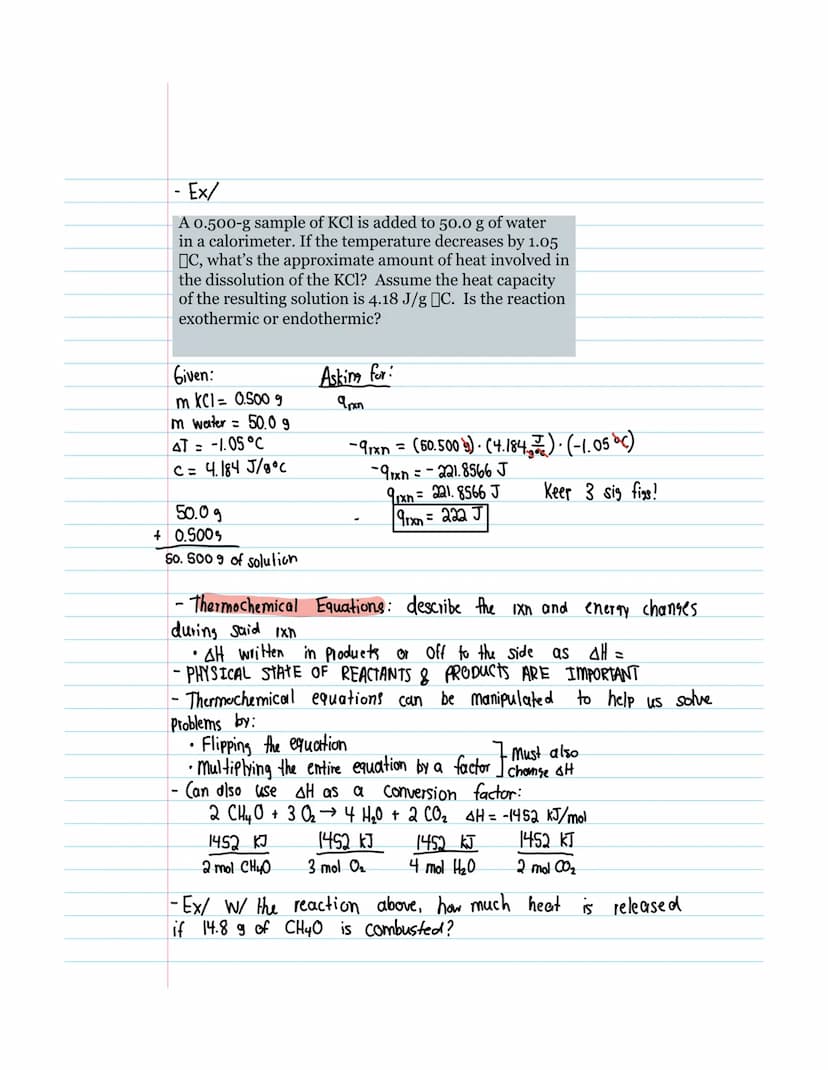 - Ex/
A 0.500-g sample of KCl is added to 50.0 g of water
in a calorimeter. If the temperature decreases by 1.05
▯C, what's the approximate amount of heat involved in
the dissolution of the KCl? Assume the heat capacity
of the resulting solution is 4.18 J/g ▯C. Is the reaction
exothermic or endothermic?
Given:
m KCl = 0.500 g
m water = 50.0 g
ΔT = -1.05 °C
C = 4.184 J/g°C
50.0 g
+ 0.500 g
50.500 g of solution
Asking for:
qrxn
-qrxn = (50.500 g) · (4.184 J/g°C) · (-1.05 °C)
-qrxn = - 221.8566 J
qrxn = 221.8566 J Keep 3 sig figs!
qrxn = 222 J
- Thermochemical Equations: describe the rxn and energy changes
during said rxn
• ΔH written in products or off to the side as ΔH =
- PHYSICAL STATE OF REACTANTS & PRODUCTS ARE IMPORTANT
- Thermochemical equations can be manipulated to help us solve
problems by:
• Flipping the equation
• Multiplying the entire equation by a factor ] Must also change ΔH
- Can also use ΔH as a conversion factor:
2 CH₄O + 3 O₂ → 4 H₂O + 2 CO₂ ΔH = -1452 KJ/mol
1452 KJ 1452 KJ 1452 KJ 1452 KJ
2 mol CH₄O 3 mol O₂ 4 mol H₂O 2 mol CO₂
- Ex/ W/ the reaction above, how much heat is released
if 14.8 g of CH₄O is combusted?